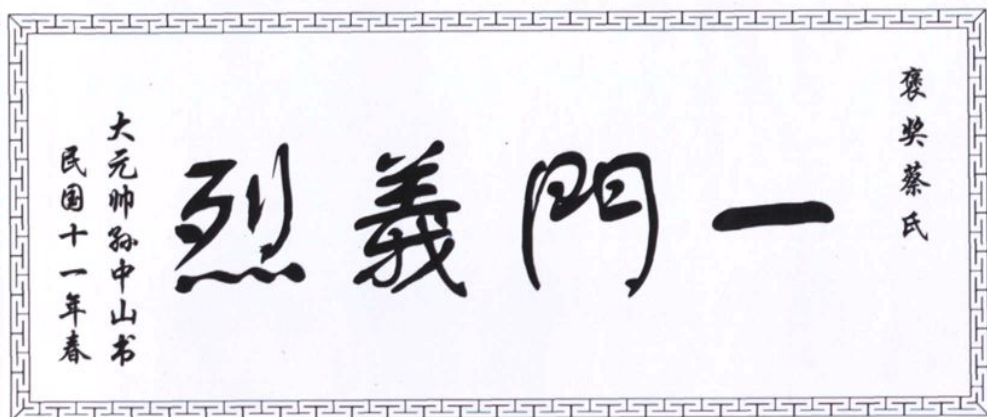 褒奖蔡氏
一門義烈
大元帅孙中山书
民国十一年春